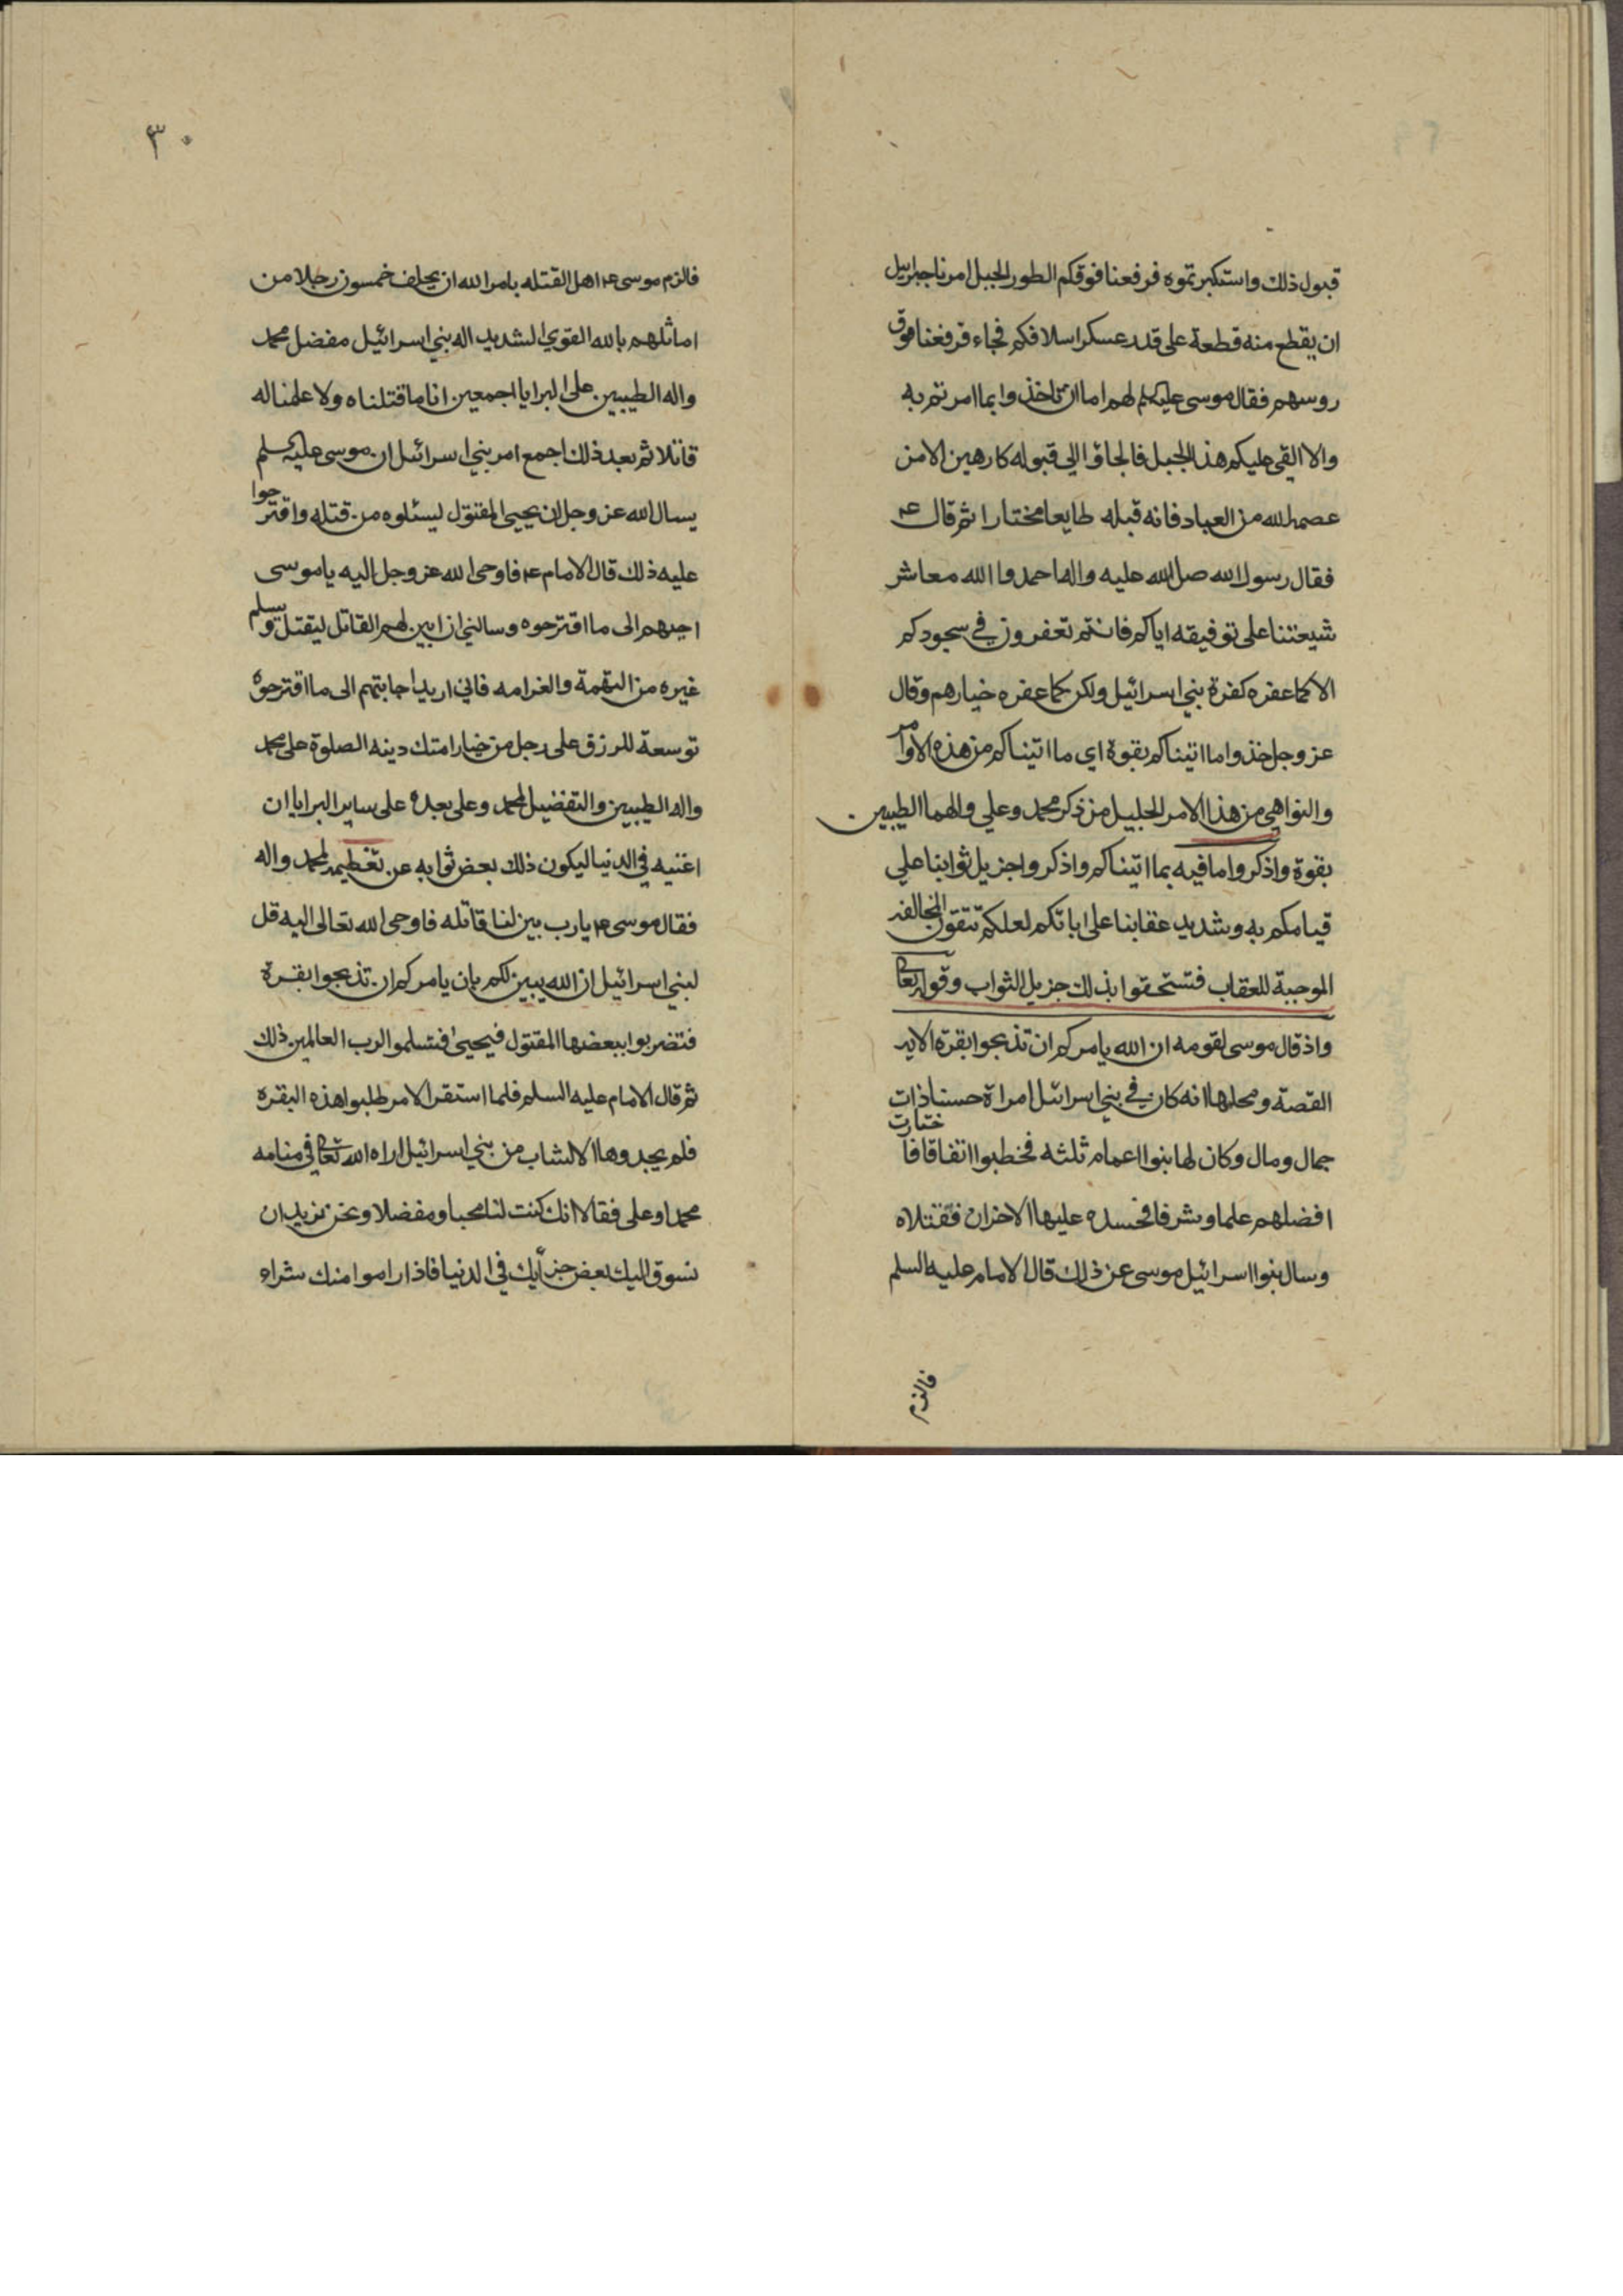 قبول ذلك واستكبرتموه فرفعنا فوقكم الطور الجبل امرنا جبرايل
ان يقطع منه قطعة على قدر عسكر اسلافكم فجاء فرفعنا فوق
روسهم فقال موسى عليكلم لهم اما ان تاخذوا بما امرتم به
والا القي عليكم هذا الجبل فالجاؤا الي قبوله كارهين الا من
عصمه الله من العباد فانه قبله طايعا مختارا ثم قال ع
فقال رسول الله صلى الله عليه واله احمدوا الله معاشر
شيعتنا على توفيقه اياكم فانتم تعفرون في سجودكم
لا كما عفره كفرة بني اسرائيل ولكن كما عفره خيارهم وقال
عز وجل خذوا ما اتيناكم بقوة اي ما اتيناكم من هذه الاوامر
والنواهي من هذا الامر الجليل من ذكر محمد وعلي والهما الطيبين
بقوة واذكروا ما فيه بما اتيناكم واذكروا جزيل ثوابنا علي
قيامكم به وشديد عقابنا على ابائكم لعلكم تتقون المخالفه
الموجبة للعقاب فتستحقوا بذلك جزيل الثواب وقوله تعالى
واذ قال موسى لقومه ان الله يامركم ان تذبحوا بقرة الايه
القصة ومحلها انه كان في بني اسرائيل امراة حسنا ذات
جمال ومال وكان لها بنوا اعمام ثلثه فخطبوا اتفاقا فاختارت
افضلهم علما وشرفا فحسده عليها الاخران فقتلاه
وسال بنوا اسرائيل موسى عن ذلك قال الامام عليه السلم
فالزم
٣٠
فالزم موسى ع اهل القتله بامر الله ان يحلف خمسون رجلا من
اماثلهم بالله القوي الشديد اله بني اسرائيل مفضل محمد
واله الطيبين على البرايا اجمعين انا ما قتلناه ولا علمنا له
قاتلا ثم بعد ذلك اجمع امر بني اسرائيل ان موسى عليه السلم
يسال الله عز وجل ان يحيي المقتول ليسئلوه من قتله واقترحوا
عليه ذلك قال الامام ع فاوحى الله عز وجل اليه يا موسى
اجبهم الى ما اقترحوه وسالني ان ابين لهم القاتل ليقتل ويسلم
غيره من التهمة والغرامه فاني اريد اجابتهم الى ما اقترحوه
توسعة للرزق على رجل من خيار امتك دينه الصلوة على محمد
واله الطيبين والتفضيل لمحمد وعلى بعده على ساير البرايا ان
اغنيه في الدنيا ليكون ذلك بعض ثوابه عن تعظيمه لمحمد واله
فقال موسى ع يا رب بين لنا قاتله فاوحى الله تعالى اليه قل
لبني اسرائيل ان الله يبين لكم بان يامركم ان تذبحوا بقرة
فتضربوا ببعضها المقتول فيحيى فتسلموا لرب العالمين ذلك
ثم قال الامام عليه السلم فلما استقر الامر طلبوا هذه البقره
فلم يجدوها الا لشاب من بني اسرائيل اراه الله تعالى في منامه
محمدا وعلى فقالا انك كنت لنا محبا ومفضلا ونحن نريد ان
نسوق اليك بعض جزائك في الدنيا فاذا راموا منك شراء